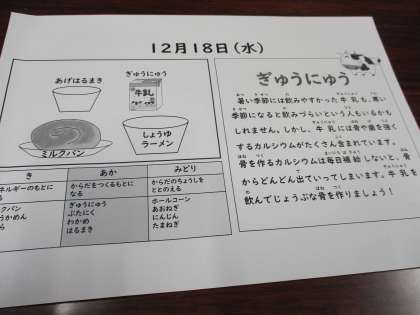 12月18日(水)
あげはるまき
ぎゅうにゅう
牛乳
ミルクパン
しょうゆ
ラーメン
き
あか
みどり
ネルギーのもとに
る
からだをつくるもとに
なる
からだのちょうしを
ととのえる
クパン
うかめん
ら
ぎゅうにゅう
ぶたにく
わかめ
はるまき
ホールコーン
あおねぎ
にんじん
たまねぎ
ぎゅうにゅう
暑い季節には飲みやすかった牛乳も、寒い
季節になると飲みづらいという人もいるかも
しれません。しかし、牛乳には骨や歯を強く
するカルシウムがたくさん含まれています。
骨を作るカルシウムは毎日補給しないと、骨
からどんどん出ていってしまいます。牛乳を
飲んでじょうぶな骨を作りましょう！